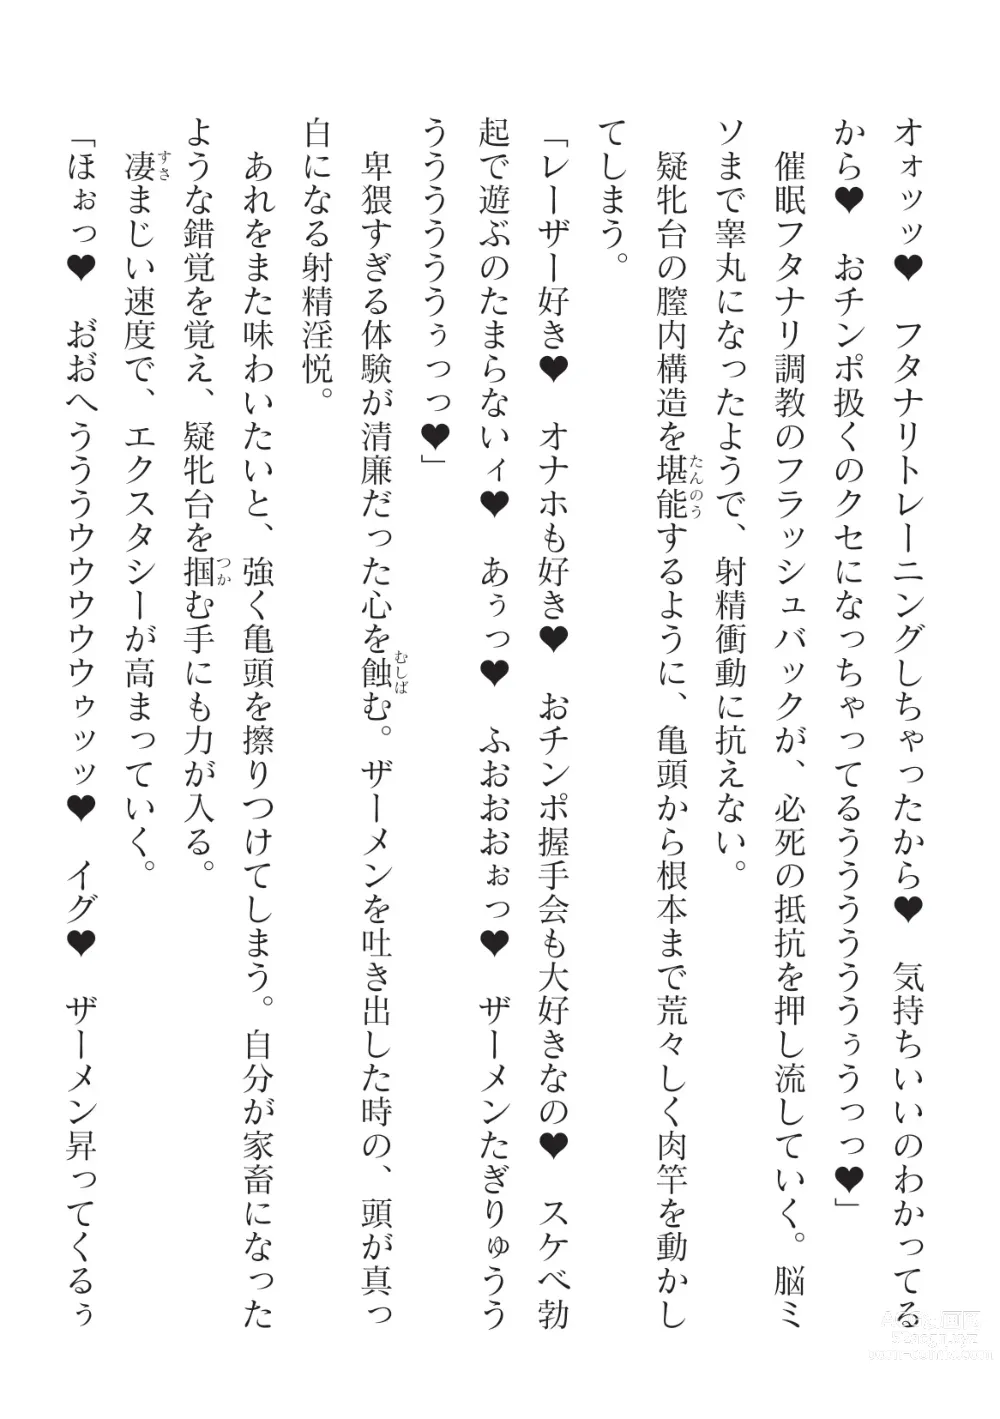 オォッッ♥　フタナリトレーニングしちゃったから♥　気持ちいいのわかってる
から♥　おチンポ扱くのクセになっちゃってるううううううぅうっっ♥」
　催眠フタナリ調教のフラッシュバックが、必死の抵抗を押し流していく。脳ミ
ソまで睾丸になったようで、射精衝動に抗えない。
たんのう
　疑牝台の膣内構造を堪能するように、亀頭から根本まで荒々しく肉竿を動かし
てしまう。
「レーザー好き♥　オナホも好き♥　おチンポ握手会も大好きなの♥　スケベ勃
起で遊ぶのたまらないィ♥　あぅっ♥　ふおおおぉっ♥　ザーメンたぎりゅうう
ううううううぅっっ♥」
むしば
　卑猥すぎる体験が清廉だった心を蝕む。ザーメンを吐き出した時の、頭が真っ
白になる射精淫悦。
　あれをまた味わいたいと、強く亀頭を擦りつけてしまう。自分が家畜になった
つか
ような錯覚を覚え、疑牝台を掴む手にも力が入る。
すさ
　凄まじい速度で、エクスタシーが高まっていく。
「ほぉっ♥　お゙お゙へうううウウウウウゥッッ♥　イグ♥　ザーメン昇ってくるぅ